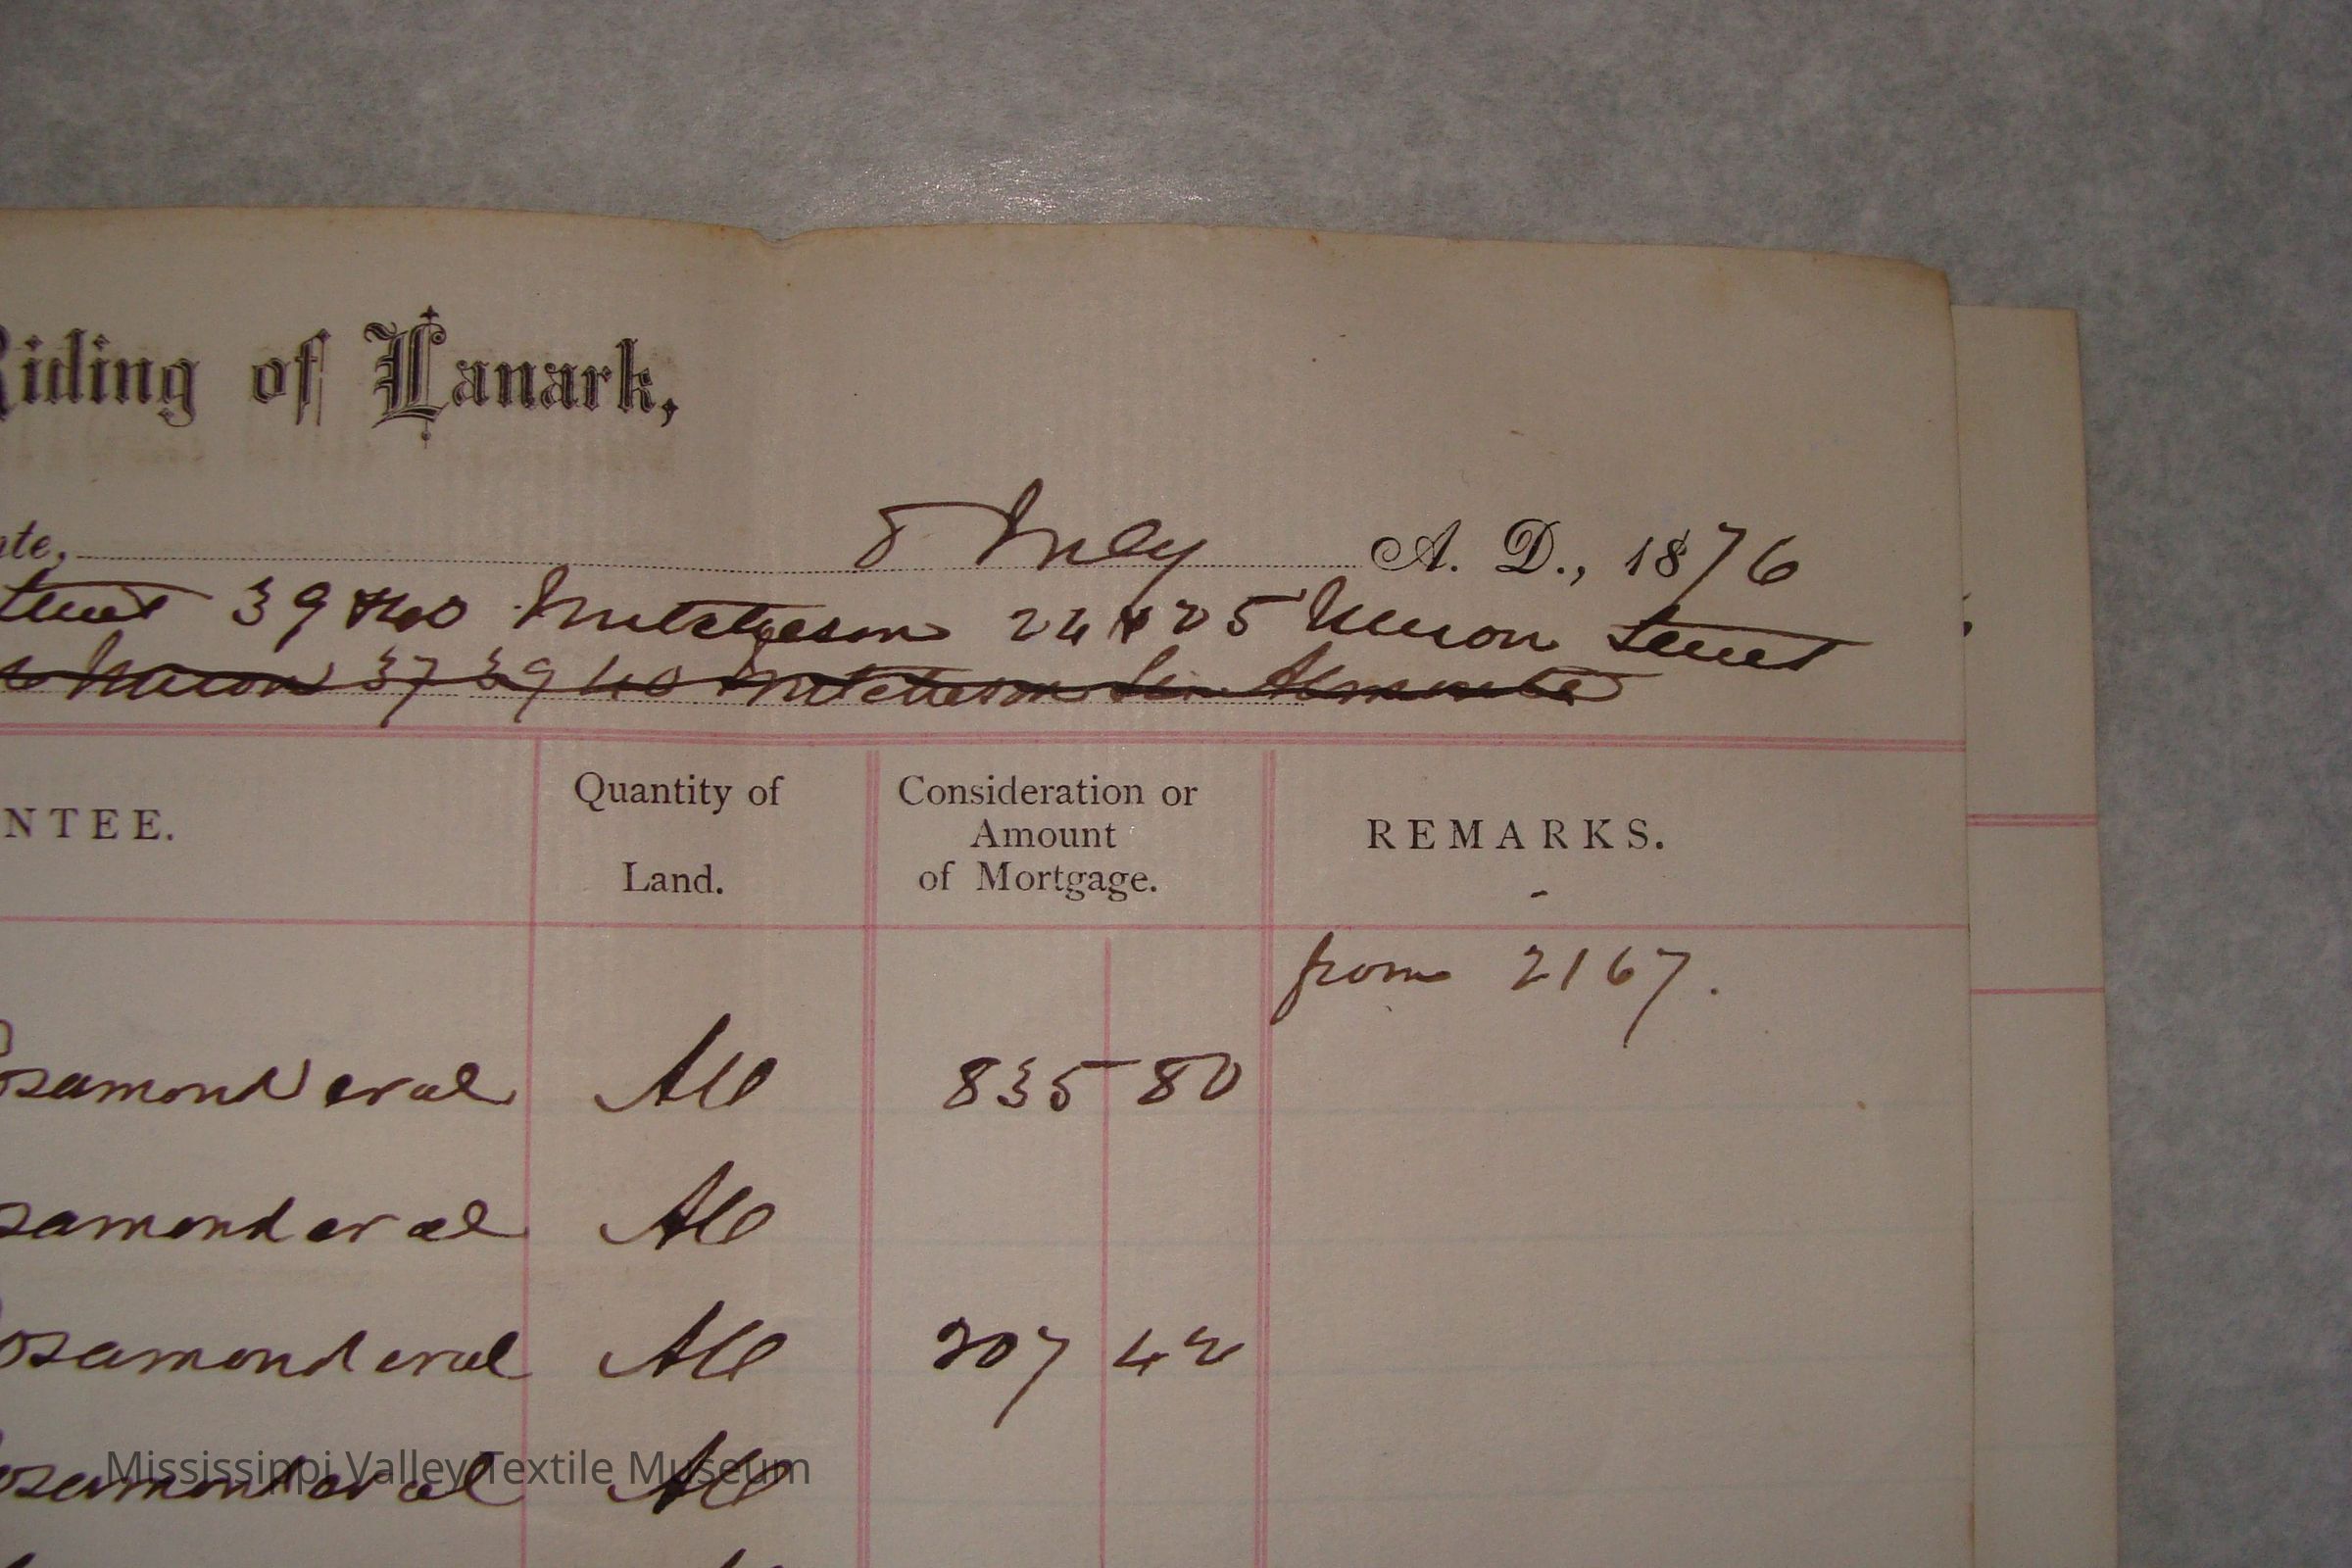 Riding of Lanark,
ate, 8 July A. D., 1876
39 & 40 Mitcheson 24 & 25 Union Street
Union 37 39 40 Mitcheson St. Almonte
NTEE. Quantity of Land. Consideration or Amount of Mortgage. REMARKS.
from 2167.
osamond et al All 835 80
samond et al All
osamond et al All 207 42
osamond et al All
Mississippi Valley Textile Museum